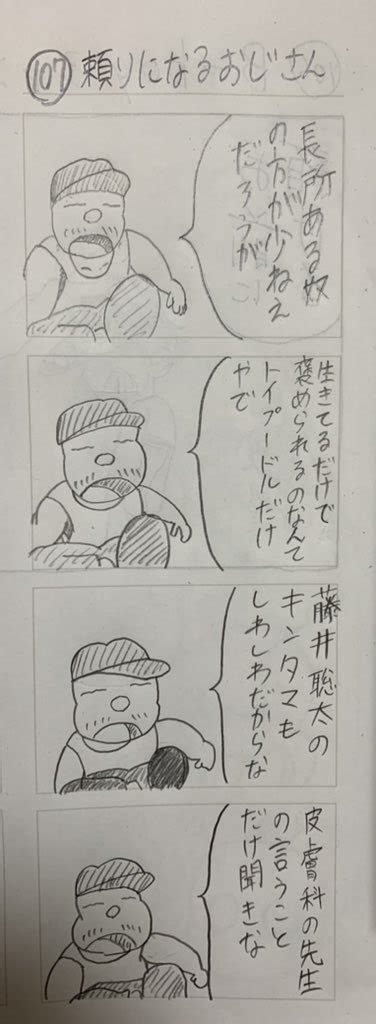 107 頼りになるおじさん
長所ある奴
の方が少ねえ
だろうが
生きてるだけで
褒められるのなんて
トイプードルだけ
やで
藤井聡太の
キンタマも
しわしわだからな
皮膚科の先生
の言うこと
だけ聞きな